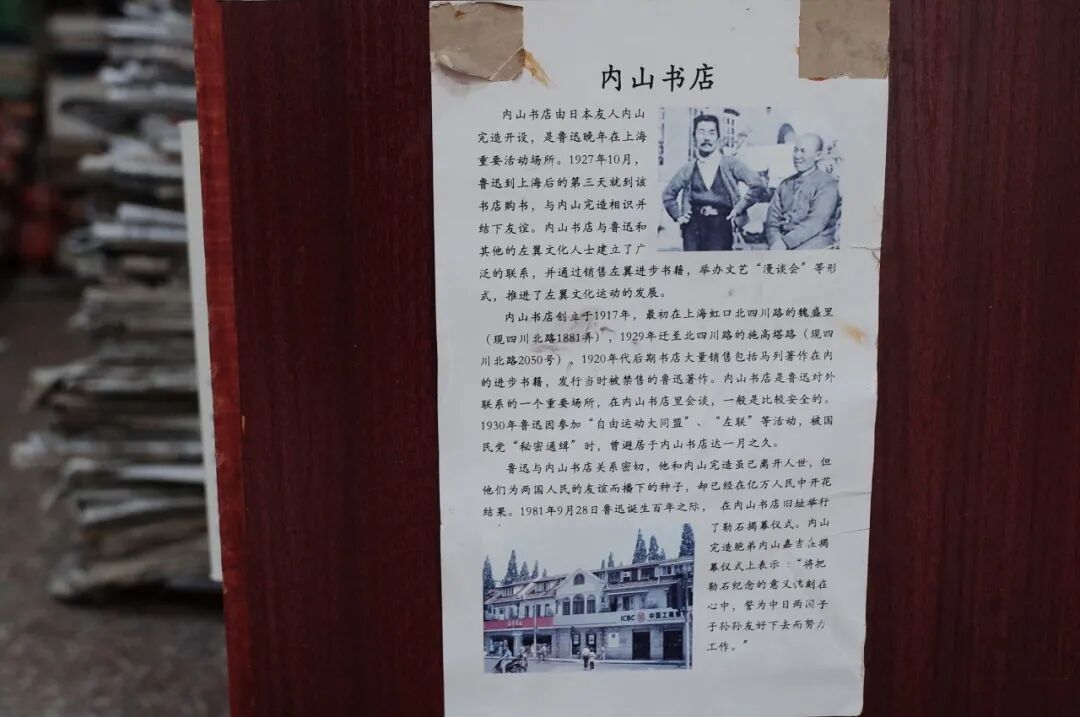 内山书店
内山书店由日本友人内山
完造开设，是鲁迅晚年在上海
重要活动场所。1927年10月，
鲁迅到上海后的第三天就到该
书店购书，与内山完造相识并
结下友谊。内山书店与鲁迅和
其他的左翼文化人士建立了广
泛的联系，并通过销售左翼进步书籍，举办文艺“漫谈会”等形
式，推进了左翼文化运动的发展。
内山书店创立于1917年，最初在上海虹口北四川路的魏盛里
（现四川北路1881弄），1929年迁至北四川路的施高塔路（现四
川北路2050号）。1920年代后期书店大量销售包括马列著作在内
的进步书籍，发行当时被禁售的鲁迅著作。内山书店是鲁迅对外
联系的一个重要场所，在内山书店里会谈，一般是比较安全的。
1930年鲁迅因参加“自由运动大同盟”、“左联”等活动，被国
民党“秘密通缉”时，曾避居于内山书店达一月之久。
鲁迅与内山书店关系密切，他和内山完造虽已离开人世，但
他们为两国人民的友谊而播下的种子，却已经在亿万人民中开花
结果。1981年9月28日鲁迅诞生百年之际，在内山书店旧址举行
了勒石揭幕仪式。内山
完造胞弟内山嘉吉在揭
幕仪式上表示：“将把
勒石纪念的意义镌刻在
心中，誓为中日两国子
子孙孙友好下去而努力
工作。”
ICBC 中国工商银